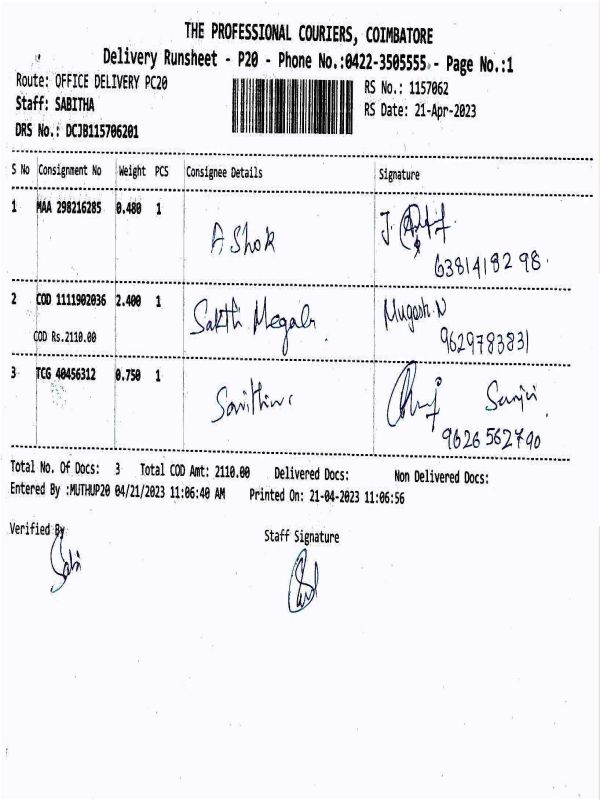 THE PROFESSIONAL COURIERS, COIMBATORE
Delivery Runsheet - P20 - Phone No.:0422-3505555 - Page No.:1
Route: OFFICE DELIVERY PC20
RS No.: 1157062
Staff: SABITHA
RS Date: 21-Apr-2023
DRS No.: DCJB115706201
S No Consignment No Weight PCS Consignee Details Signature
1 MAA 298216285 0.480 1
AShok J.
6381418298.
2 COD 1111902036 2.400 1
Sakthi Mugesh.N
COD Rs.2110.00 9629783831
3 TCG 40456312 0.750 1
9626562790
Total No. Of Docs: 3 Total COD Amt: 2110.00 Delivered Docs: Non Delivered Docs:
Entered By :MUTHUP20 04/21/2023 11:06:40 AM Printed On: 21-04-2023 11:06:56
Verified By Staff Signature
Sabi